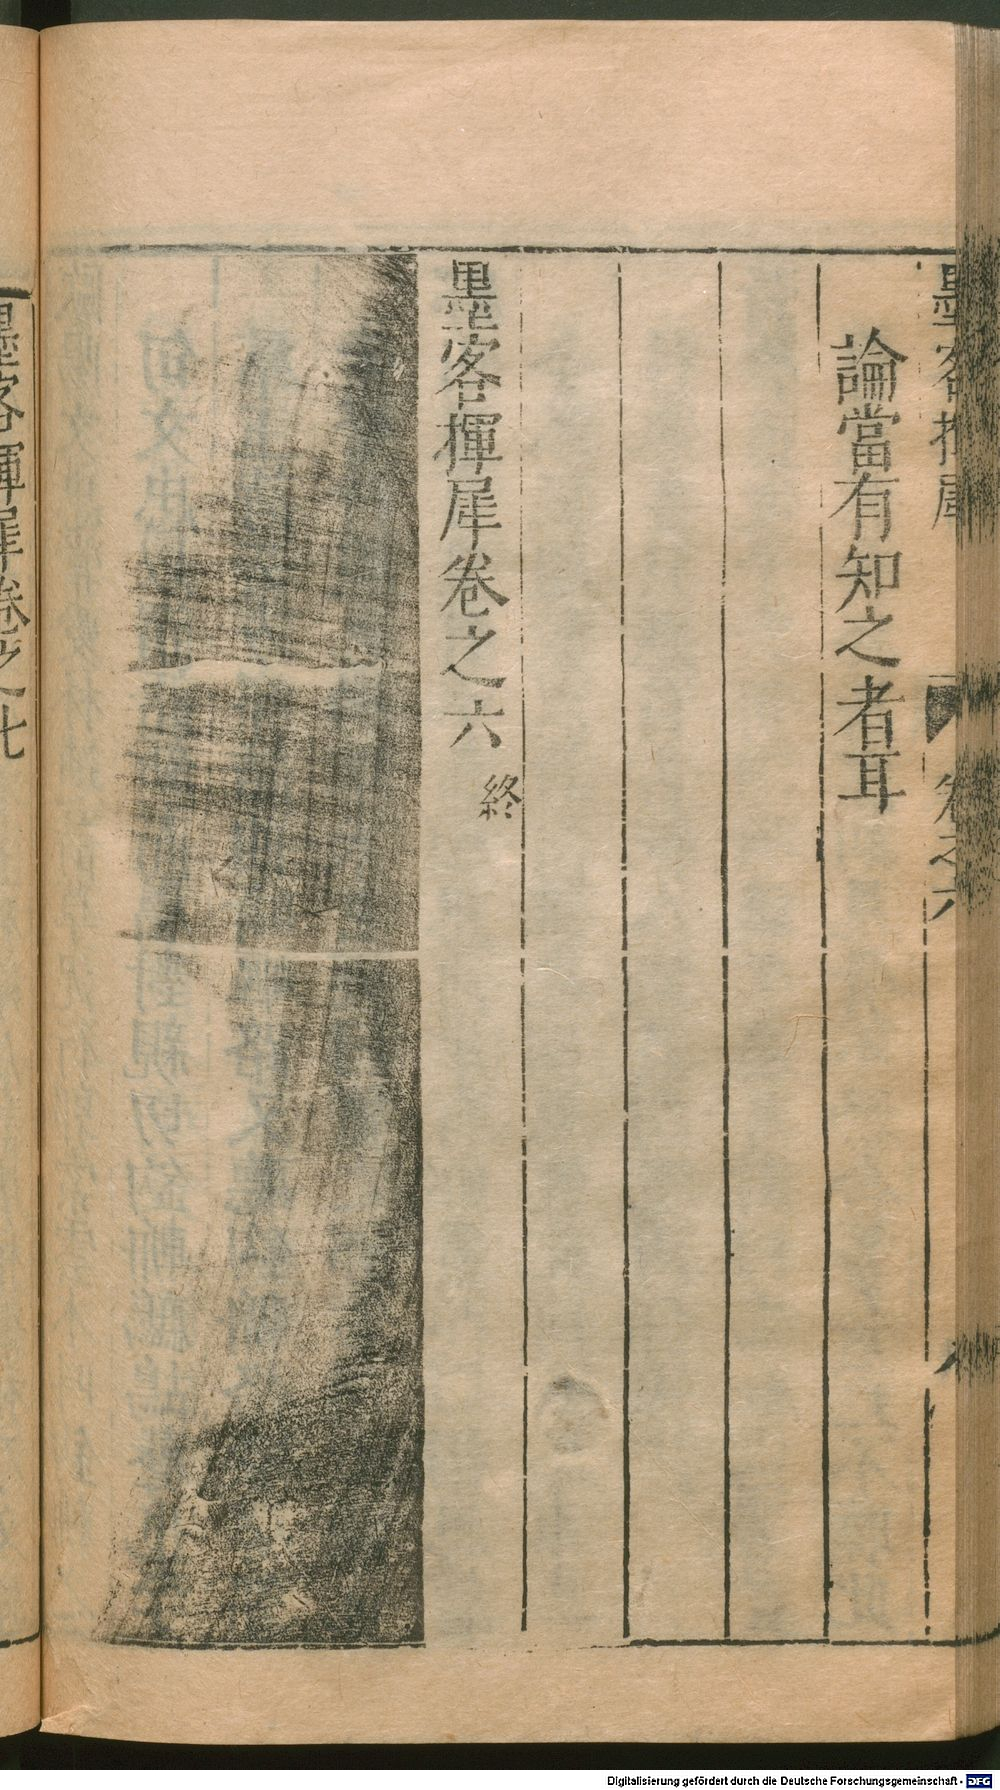 論當有知之者耳
墨客揮犀卷之六 終
墨客揮犀卷之七
Digitalisierung gefördert durch die Deutsche Forschungsgemeinschaft - DFG